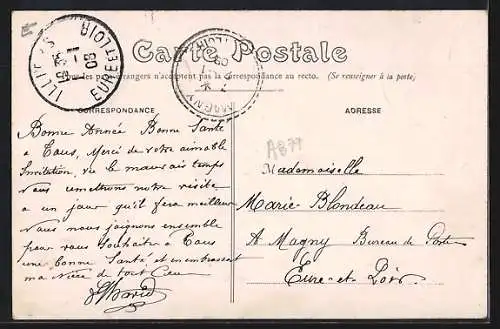 Carte Postale
pays étrangers n'acceptent pas la correspondance au recto. (Se renseigner à la poste)
CORRESPONDANCE
ADRESSE
ILLIERS
EURE ET LOIR
08
MAGNY
Bonne Année Bonne Santé
à Tous, Merci de votre aimable
Invitation, vu le mauvais temps
Nous remettrons notre visite
a un jour qu'il fera meilleur
Nous nous joignons ensemble
pour vous souhaiter à Tous
une bonne Santé et en embrassant
ma Nièce de tout Cœur
David
A877
Mademoiselle
Marie Blondeau
A Magny Bureau de Poste
Eure-et-Loir